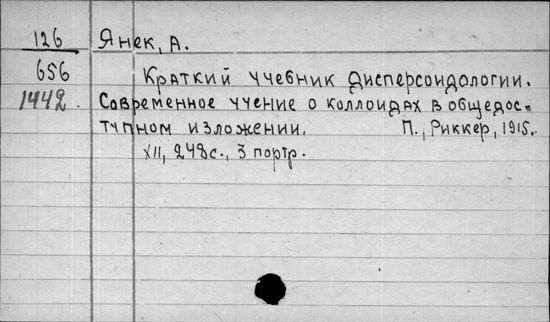 126 Янек, А.
656 Краткий учебник дисперсоидологии.
1442. Современное учение о коллоидах в общедос-
тупном изложении. П., Риккер, 1915.
XII, 248 с., 3 портр.